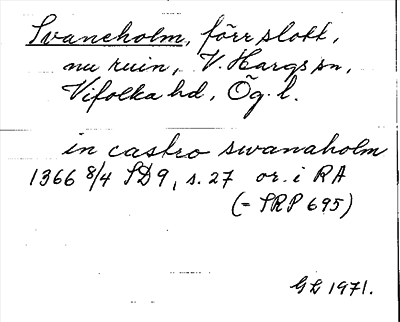 Svaneholm, förr slott,
nu ruin, V. Hargs sn,
Vifolka hd, Ög. l.
in castro swanaholm
1366 8/4 SD9, s. 27 or. i RA
(= SRP 695)
GL 1971.